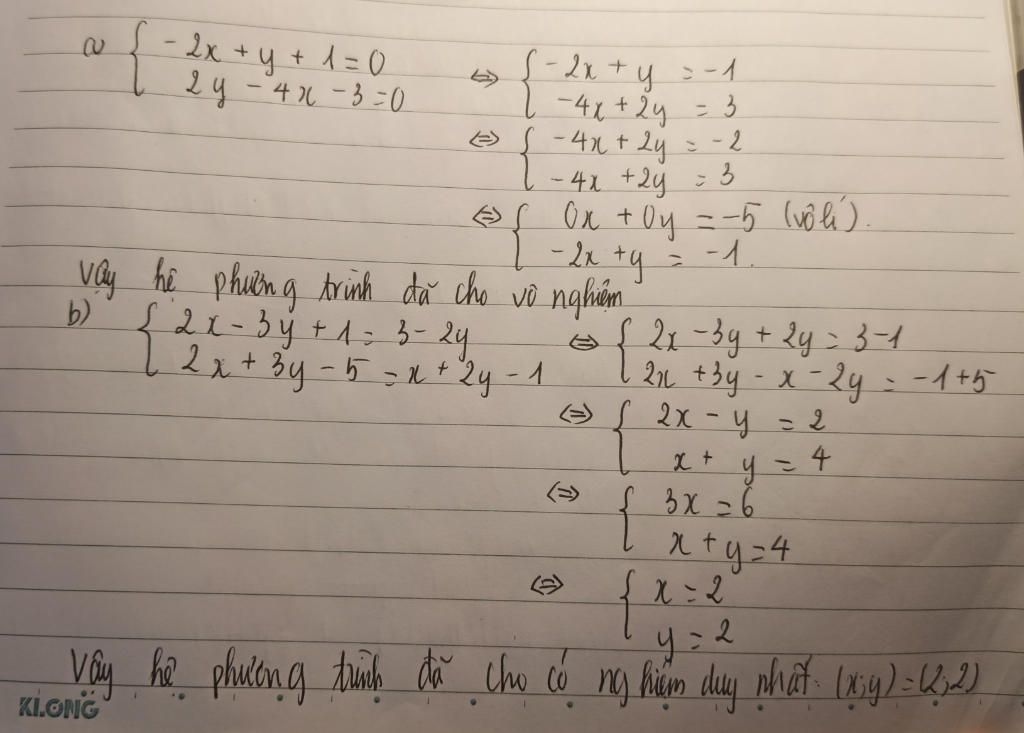 a) { -2x + y + 1 = 0 ⇔ { -2x + y = -1
2y - 4x - 3 = 0 -4x + 2y = 3
⇔ { -4x + 2y = -2
-4x + 2y = 3
⇔ { 0x + 0y = -5 (vô lí).
-2x + y = -1.
Vậy hệ phương trình đã cho vô nghiệm
b) { 2x - 3y + 1 = 3 - 2y ⇔ { 2x - 3y + 2y = 3 - 1
2x + 3y - 5 = x + 2y - 1 2x + 3y - x - 2y = -1 + 5
⇔ { 2x - y = 2
x + y = 4
⇔ { 3x = 6
x + y = 4
⇔ { x = 2
y = 2
Vậy hệ phương trình đã cho có nghiệm duy nhất. (x;y) = (2;2)
KLONG